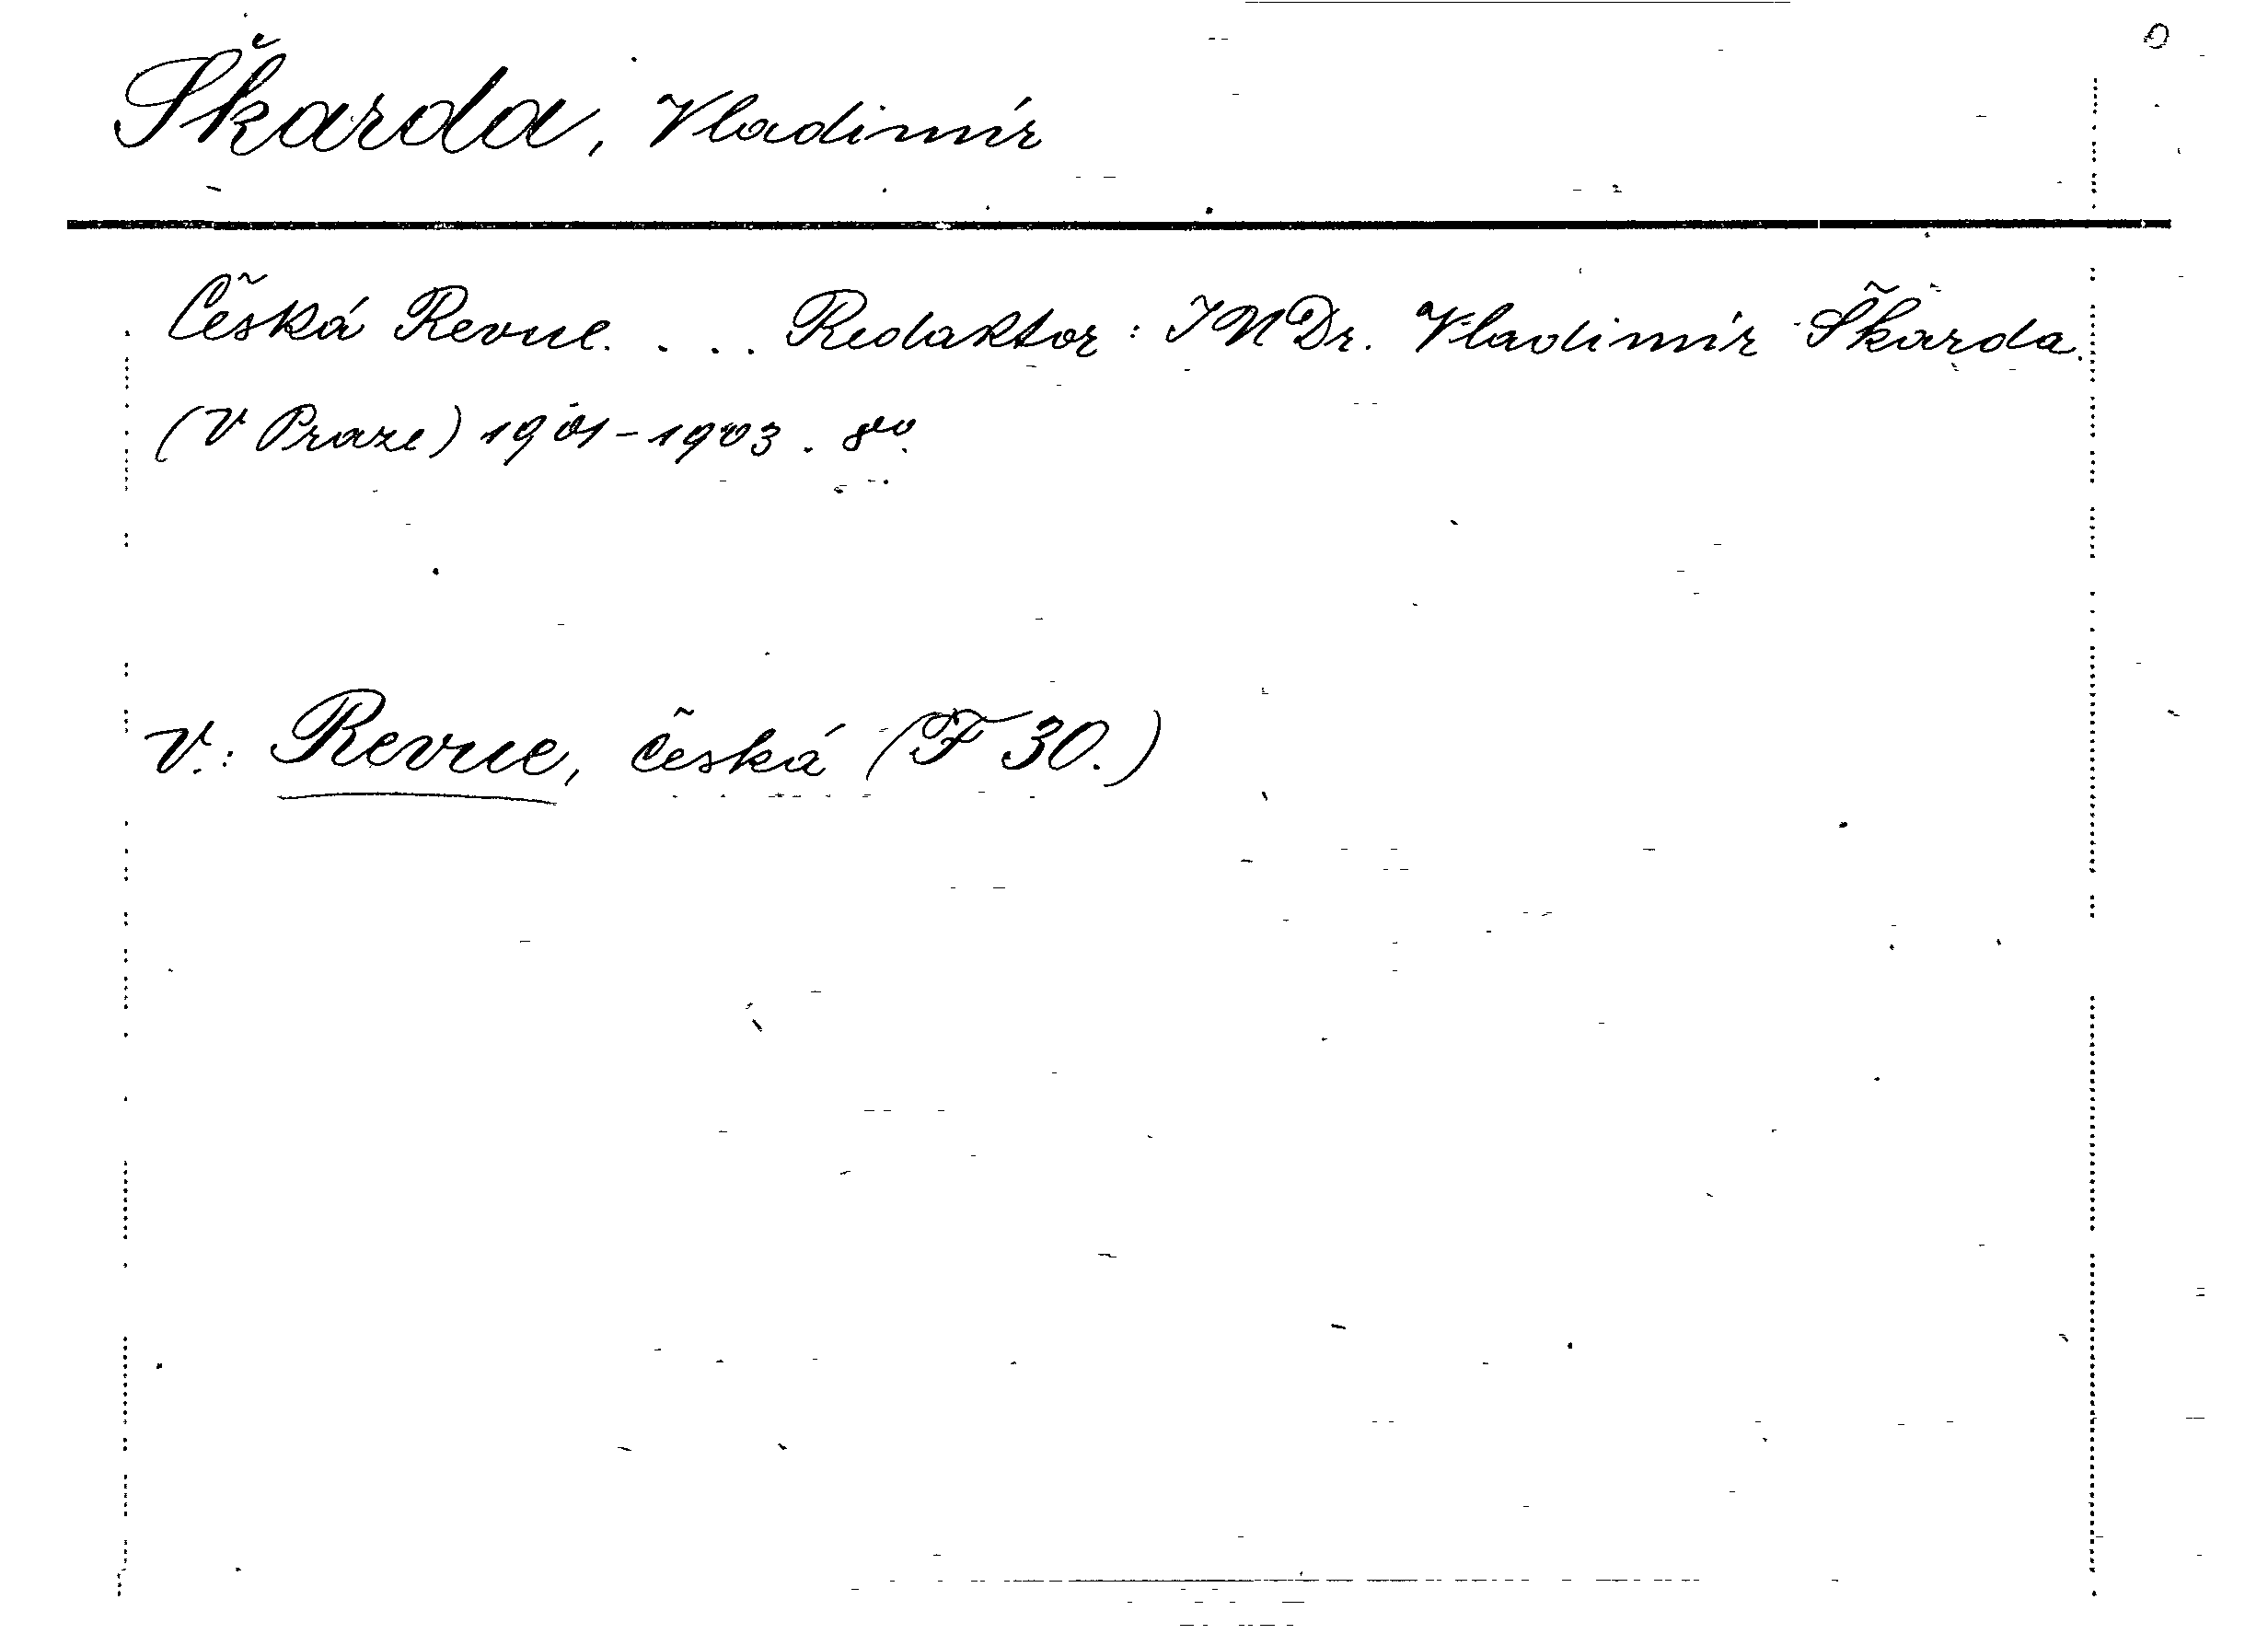 Škarda, Vladimír
Česká Revue. ... Redaktor: JUDr. Vladimír Škarda.
(V Praze) 1901-1903. 8vo.
v.: Revue, česká (F 30.)